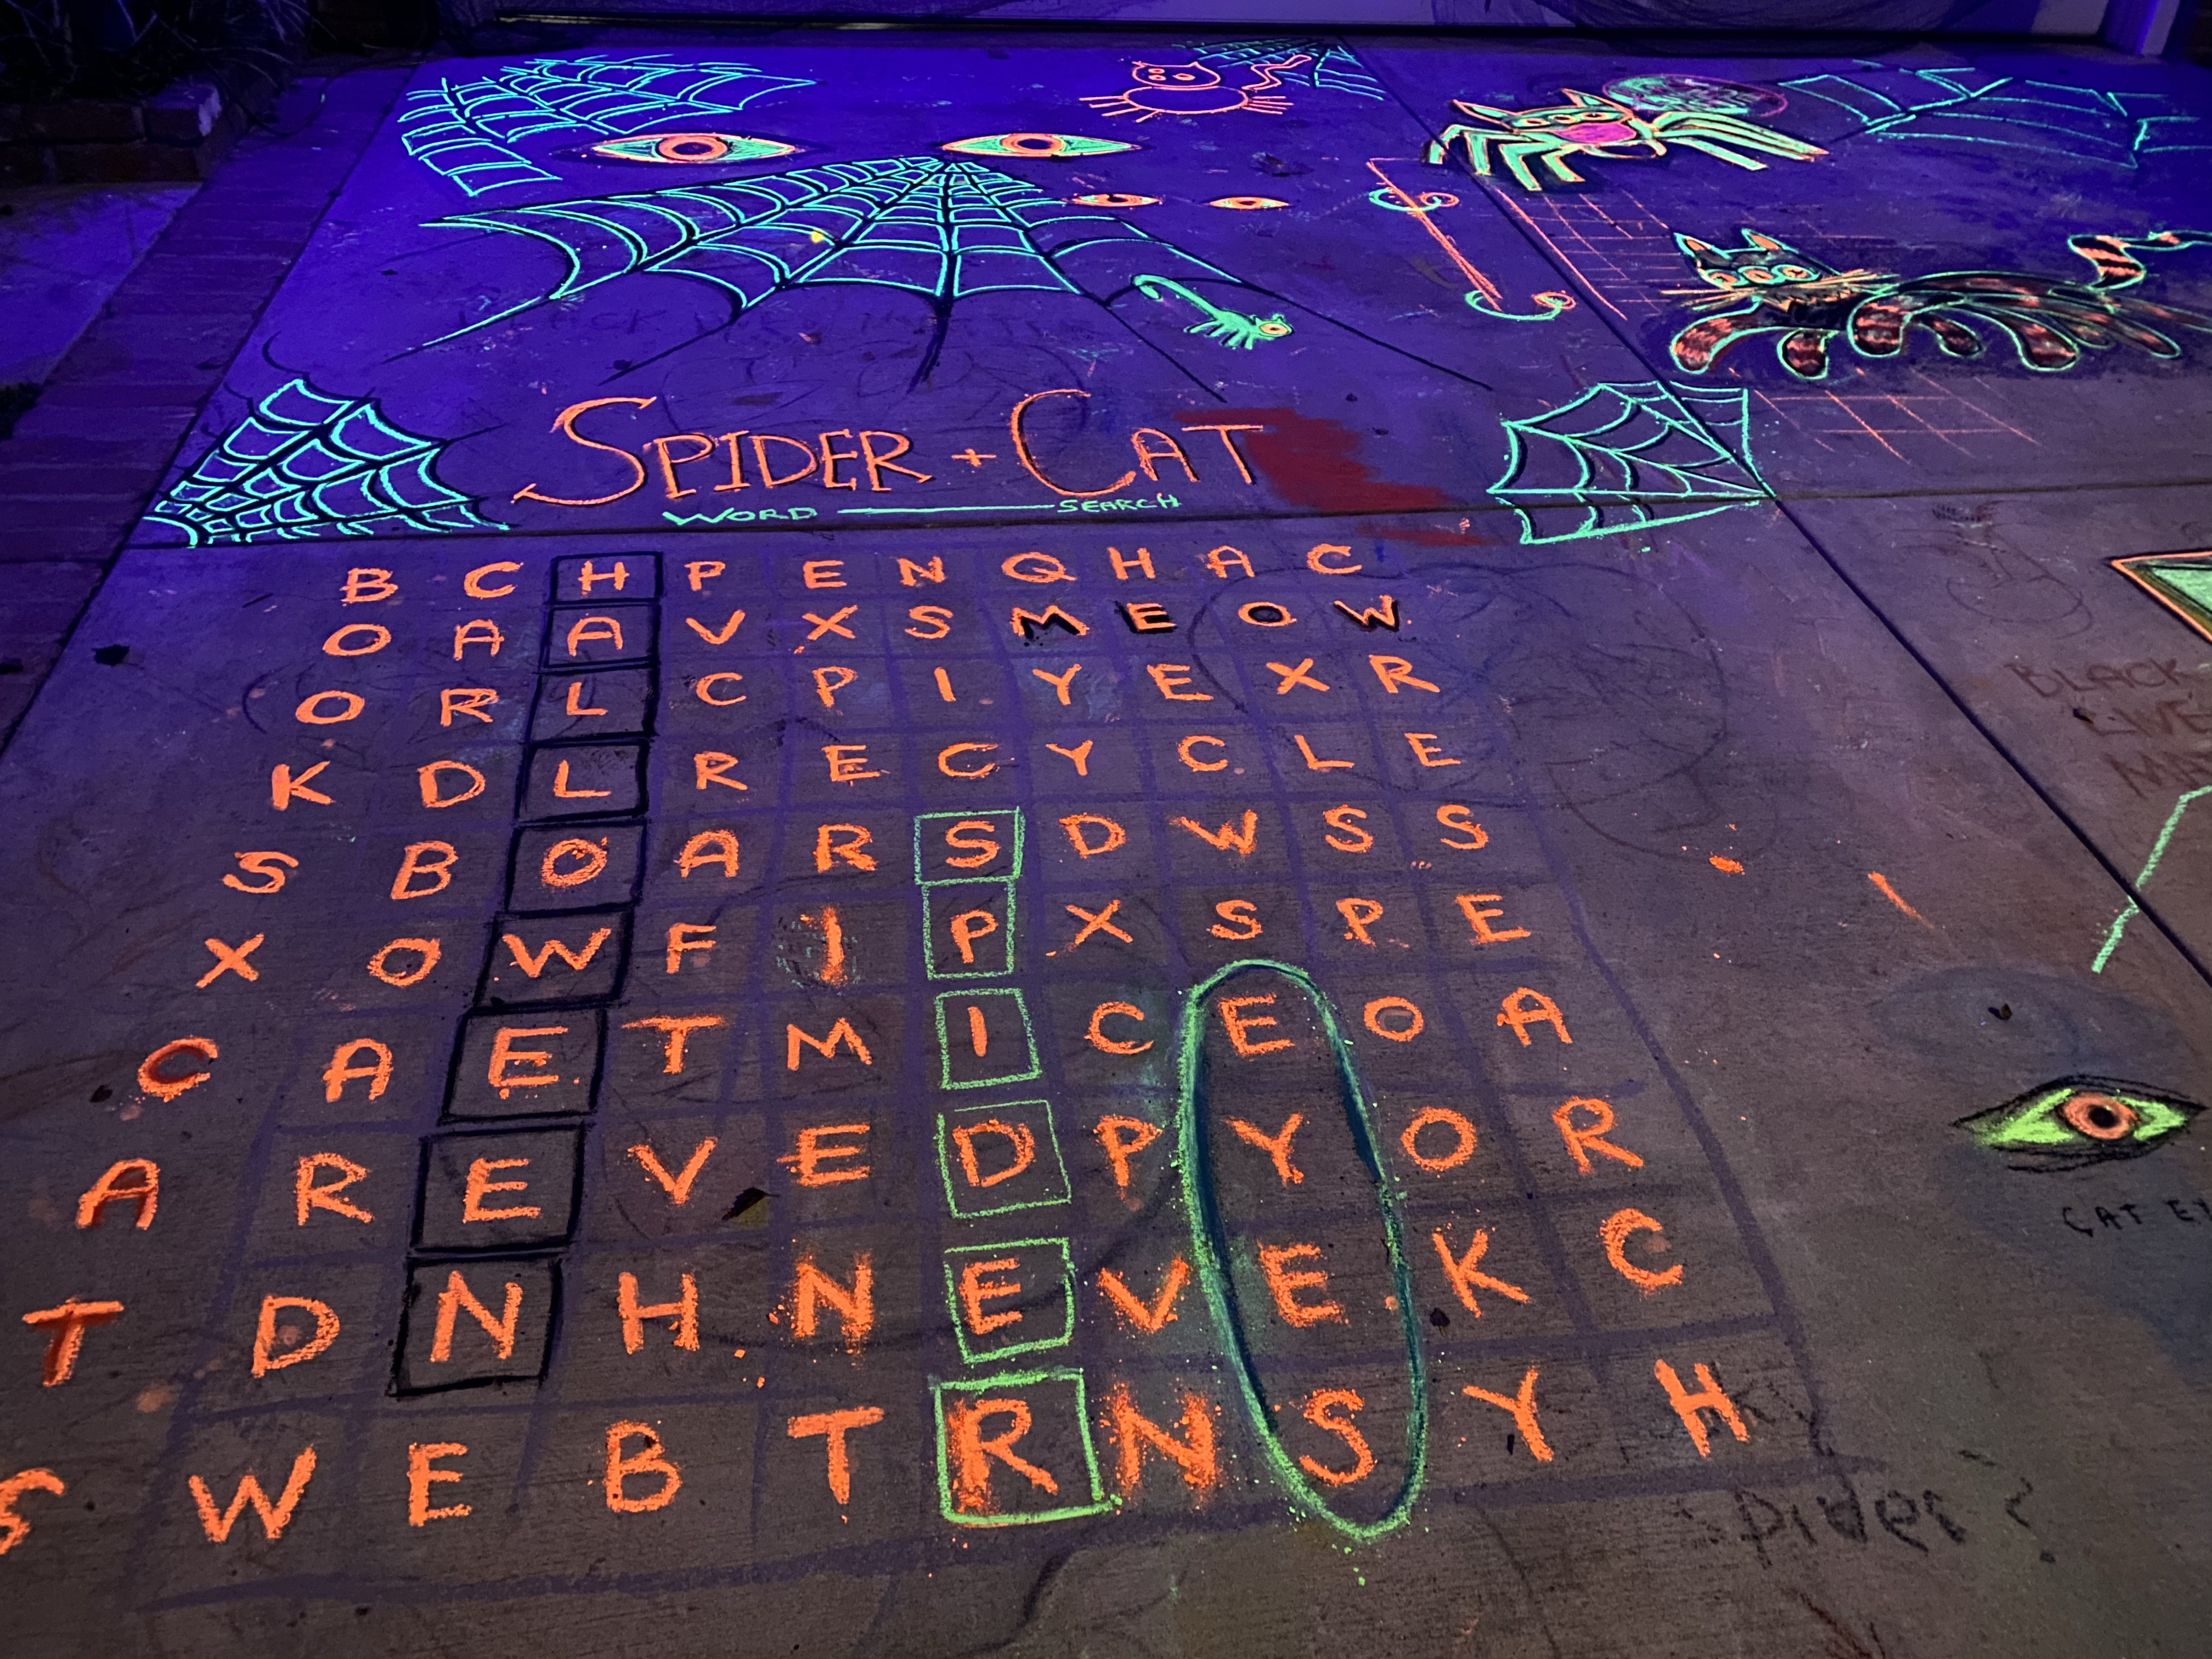 SPIDER + CAT
WORD SEARCH
B C H P E N Q H A C
O A A V X S M E O W
O R L C P I Y E X R
K D L R E C Y C L E
S B O A R S D W S S
X O W F I P X S P E
C A E T M I C E O A
A R E V E D P Y O R
T D N H N E V E K C
S W E B T R N S Y H
BLACK
LIVE
MA
CAT EY
Spider ?